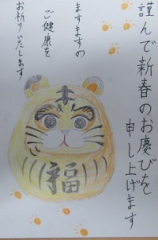 謹んで新春のお慶びを
申し上げます
ますますの
ご健康を
お祈りいたします
福